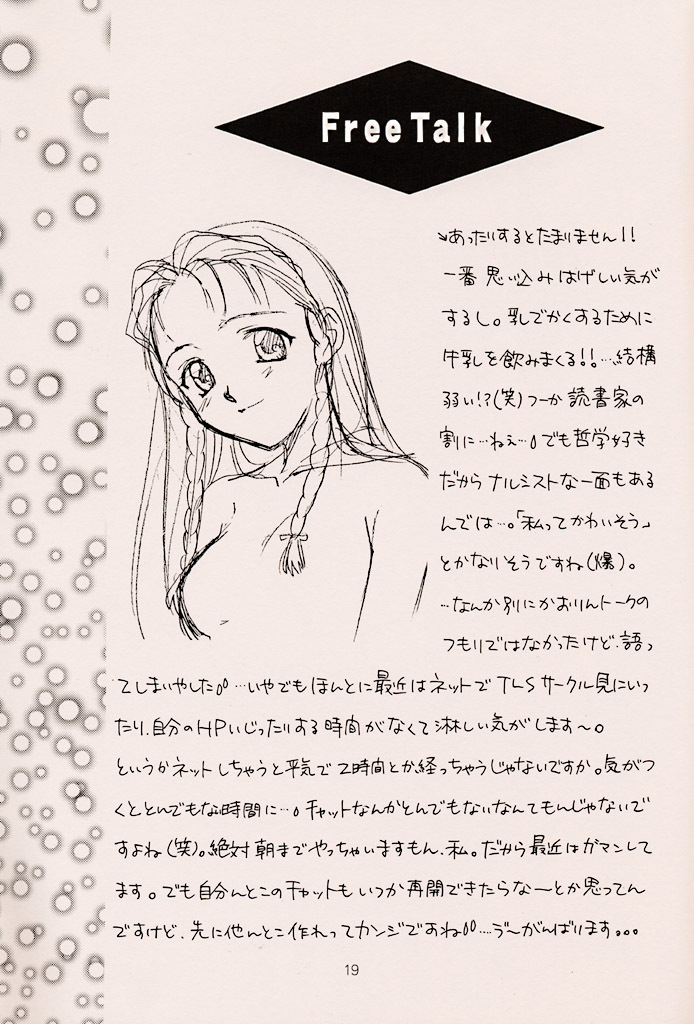 Free Talk
↘あったりするとたまりません!!
一番思い込みはげしい気が
するし。乳でかくするために
牛乳を飲みまくる!!…結構
弱い!?(笑)つーか読書家の
割に…ねぇ…。でも哲学好き
だからナルシストな一面もある
んでは…。「私ってかわいそう」
とかないそうですね(爆)。
…なんか別にかおりんトークの
つもりではなかったけど、語っ
てしまいやした。…いやでもほんとに最近はネットでTLSサークル見にいっ
たり、自分のHPいじったりする時間がなくて淋しい気がします〜。
というかネットしちゃうと平気で2時間とか経っちゃうじゃないですか。気がつ
くととんでもな時間に…。チャットなんかとんでもないなんてもんじゃないで
すよね(笑)。絶対朝までやっちゃいますもん、私。だから最近はガマンして
ます。でも自分んとこのチャットもいつか再開できたらなーとか思ってん
ですけど、先に他んとこ作れってカンジですね…う〜がんばります。。。
19